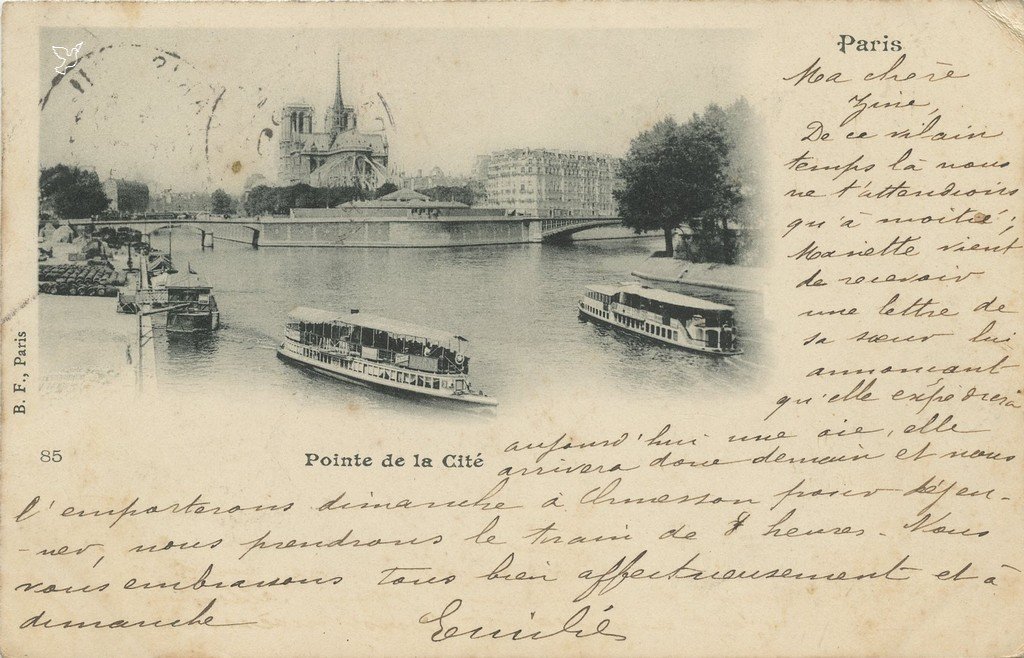 Paris
Ma chère
Zine,
De ce vilain
temps là nous
ne t'attendions
qu'à moitié;
Mariette vient
de recevoir
une lettre de
sa sœur lui
annonçant
qu'elle expédiera
aujourd'hui une oie, elle
arrivera donc demain et nous
l'emporterons dimanche à Ormesson pour déjeu-
-ner, nous prendrons le train de 8 heures. Nous
vous embrassons tous bien affectueusement et à
dimanche
Emilie
B. F., Paris
85
Pointe de la Cité